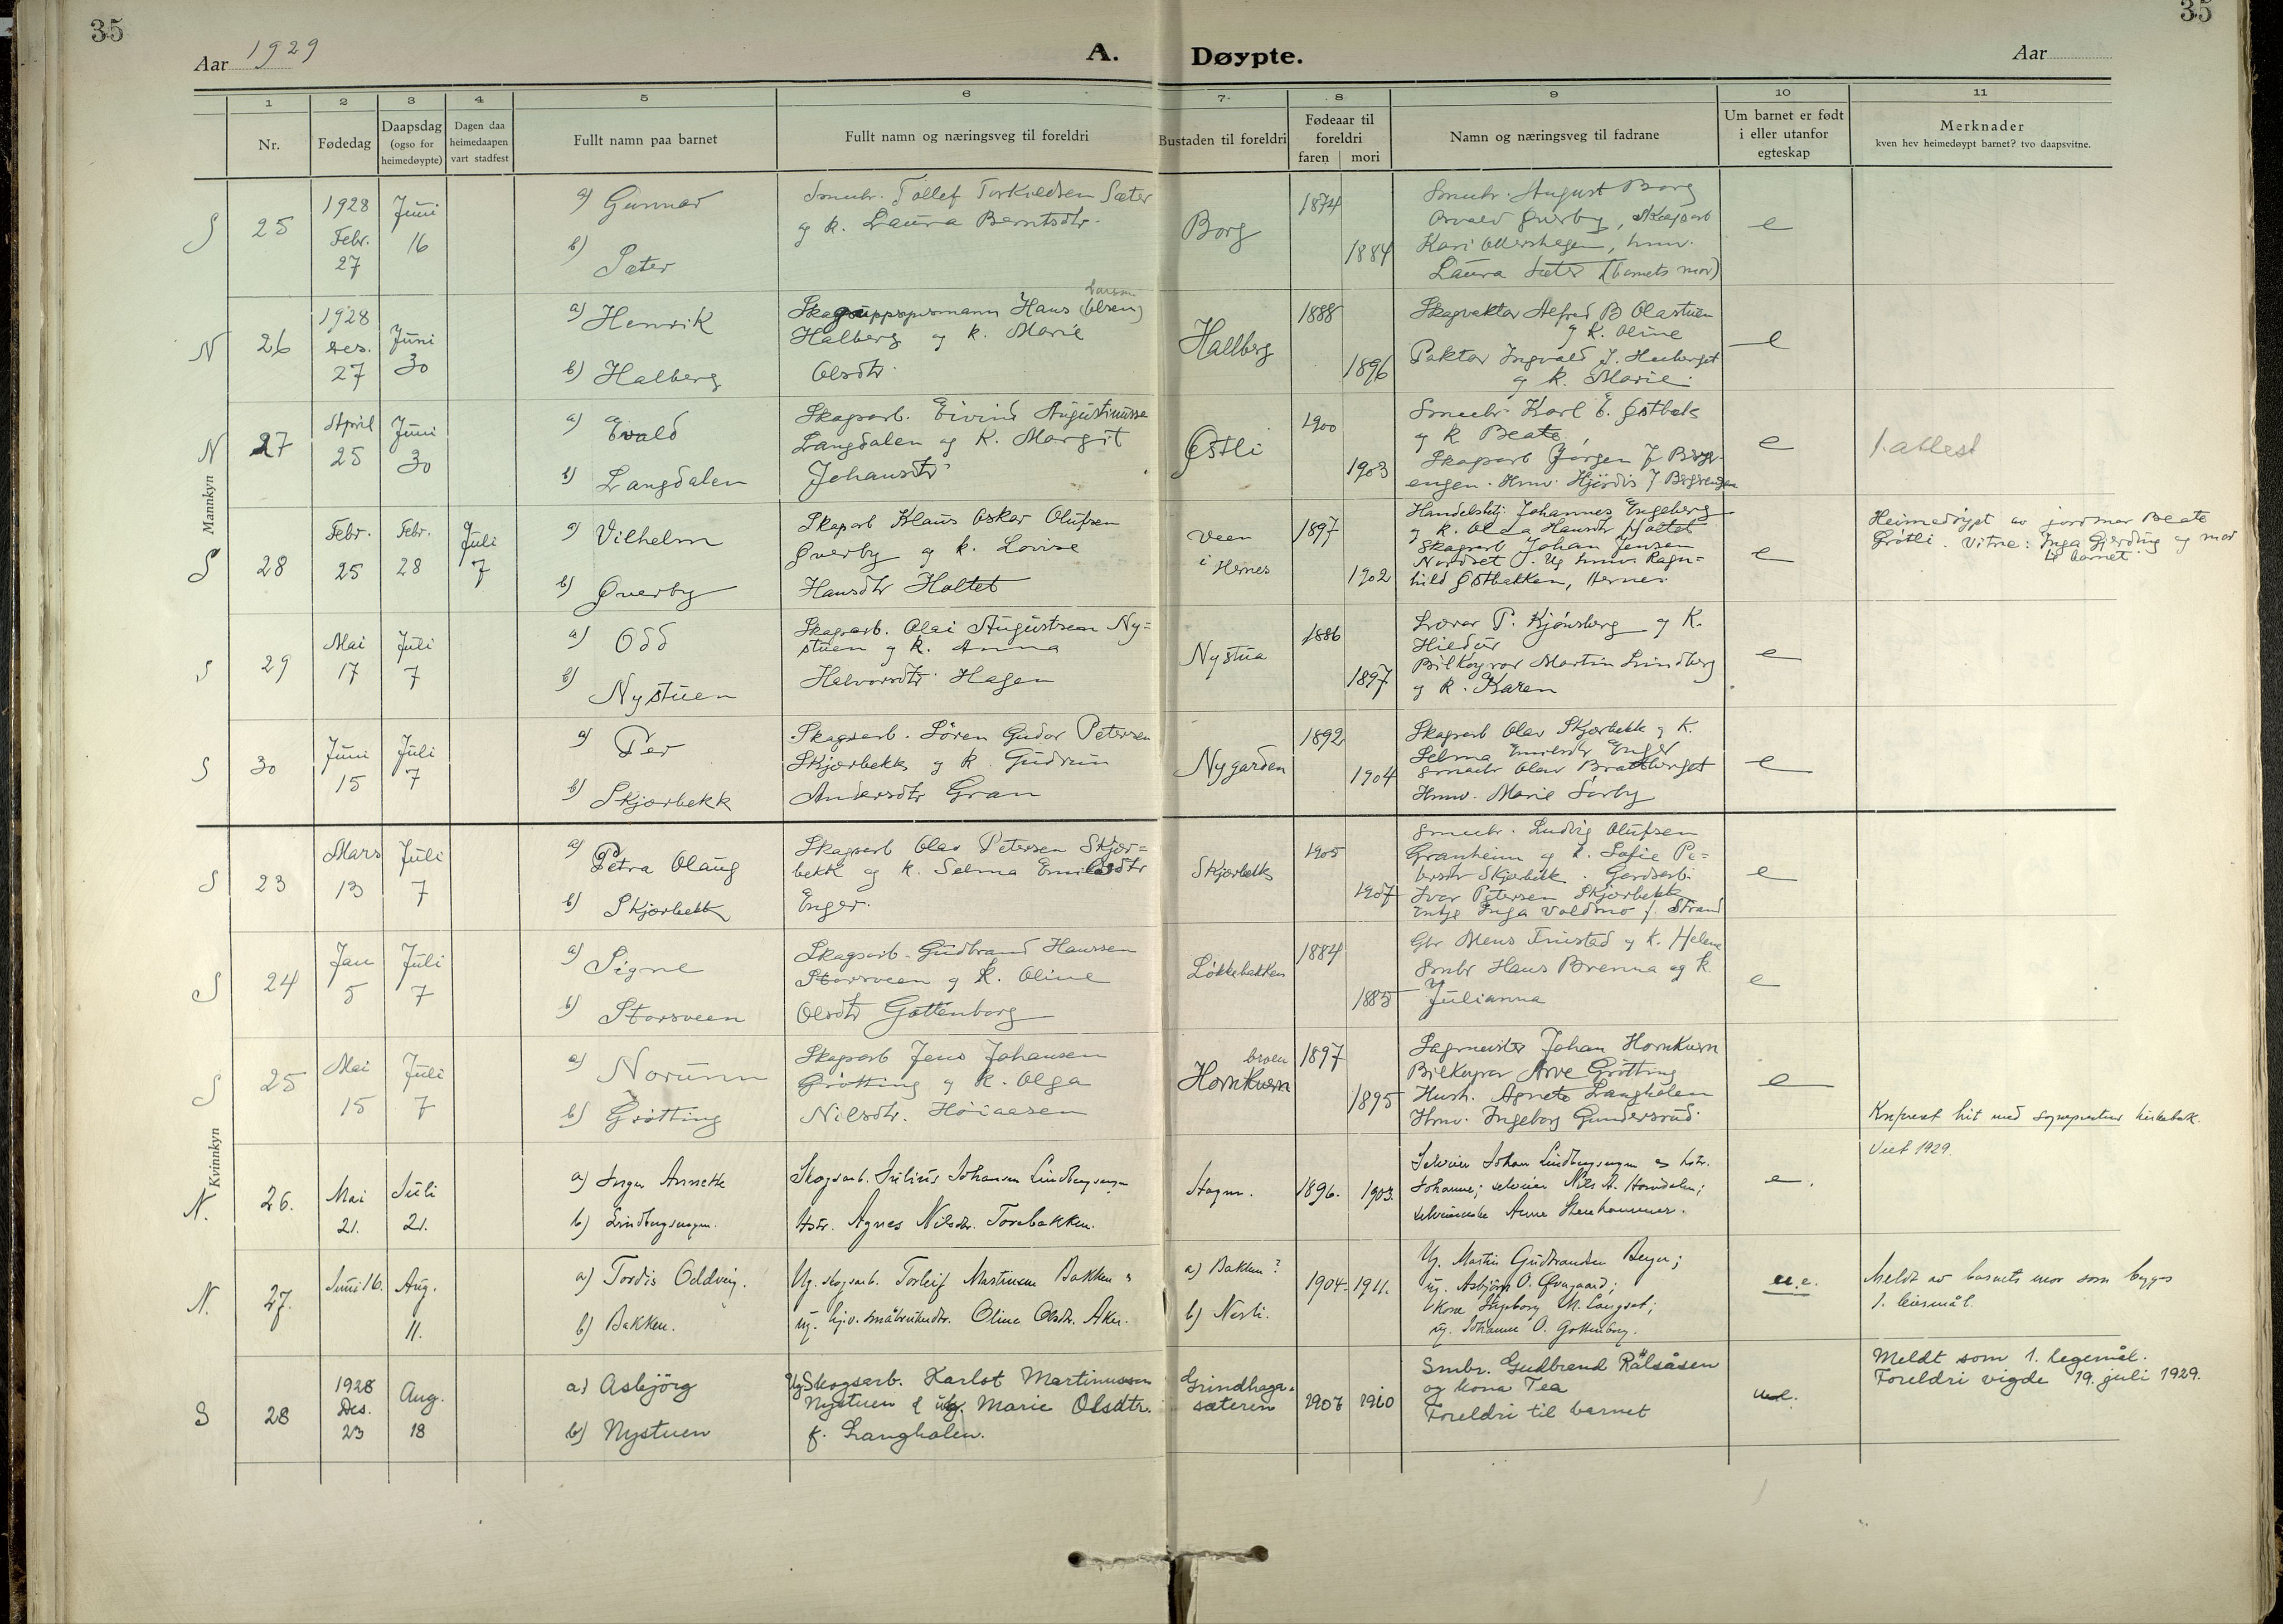 35
35
Aar 1929
A. Døypte.
Aar
1 2 3 4 5 6 7. 8 9 10 11
Nr.
Fødedag
Daapsdag
(ogso for
heimedøypte)
Dagen daa
heimedaapen
vart stadfest
Fullt namn paa barnet
Fullt namn og næringsveg til foreldri
Bustaden til foreldri
Fødeaar til
foreldri
faren mori
Namn og næringsveg til fadrane
Um barnet er født
i eller utanfor
egteskap
Merknader
kven hev heimedøypt barnet? tvo daapsvitne.
Mannkyn
S 25
1928
Febr.
27
Juni
16
a) Gunnar
b) Sæter
Smubr. Tollef Torkildsen Sæter
og k. Laura Berntsdtr.
Borg
1874
1884
Smubr. August Borg
Osvald Øverby, Skagsarb
Kari Ottershagen, hmv.
Laura Sæter (barnets mor)
e
N 26
1928
Des.
27
Juni
30
a) Henrik
b) Halberg
Hans (Olsen)
Halberg og k. Marie
Olsdtr.
Hallberg
1888
1896
Skogvaktar Alfred B Olastuen
og k. Oline
Paktar Ingvald J. Heberget
og k. Marie
e
N 27
April
25
Juni
30
a) Evald
b) Langdalen
Skagsarb. Eivind Augustinussen
Langdalen og k. Margit
Johansdtr
Østli
1900
1903
Smubr Karl E. Østbek
og k Beate,
Skagsarb Jørgen J Berger
engen. Hmv. Hjørdis J Bergengen
e
1. attest
S 28
Febr.
25
Febr.
28
Juli
7
a) Vilhelm
b) Øverby
Skagsarb Klaus Oskar Olufsen
Øverby og k. Lovise
Hansdtr Holtet
Veen
i Hernes
1897
1902
Handelsbtj. Johannes Engeberg
og k. Olea Hansdtr Holtet
Skagsarb Johan Jensen
Nordset. Ug hmv. Ragn=
hild Østbakken, Hernes.
e
Heimedøypt av jordmor Beate
Grøtli. Vitne: Inga Gjerding og mor
til barnet
S 29
Mai
17
Juli
7
a) Odd
b) Nystuen
Skagsarb. Olai Augustsen Ny=
stuen og k. Anna
Halvorsdtr Hagen
Nystua
1886
1897
Lærar P. Kjønsberg og k.
Hildur
Bilkøyrar Martin Lindberg
og k. Karen
e
S 30
Juni
15
Juli
7
a) Per
b) Skjærbekk
Skagsarb. Søren Gudor Petersen
Skjærbekk og k. Gudrun
Andersdtr Gran
Nygarden
1892
1904
Skagsarb Olav Skjærbekk og k.
Selma Emilsdtr Enger
Smaabr Olav Bratberget
Hmv. Marie Sørby
e
Kvinnkyn
S 23
Mars
13
Juli
7
a) Petra Olaug
b) Skjærbekk
Skagsarb Olav Petersen Skjær=
bekk og k. Selma Emilsdtr
Enger.
Skjærbekk
1905
1907
Smubr. Ludvig Olufsen
Granheim og k. Sofie Pe=
tersdtr Skjærbekk. Gardsarb.
Ivar Petersen Skjærbekk
Enkje Inga Voldmo f. Strand
e
S 24
Jan
5
Juli
7
a) Signe
b) Storsveen
Skagsarb. Gudbrand Hanssen
Storsveen og k. Oline
Olsdtr Gottenborg
Løkkebakken
1884
1885
Gbr Mens Finstad og k. Helene
Smbr Hans Brenna og k.
Julianna
e
S 25
Mai
15
Juli
7
a) Norunn
b) Grøtting
Skagsarb Jens Johansen
Grøtting og k. Olga
Nilsdtr. Høiaasen
Hornkvernbroen
1897
1895
Sagmeister Johan Hornkvern
Bilkøyrar Arve Grøtting
Hustr. Agnete Langholen
Hmv. Ingeborg Gundersrud.
e
Konferert hit med sokneprestens kirkebok.
Vist 1929.
N. 26.
Mai
21.
Juli
21.
a) Inger Annette
b) Lindbergsengen.
Skogsarb. Julius Johansen Lindbergsengen
Hstr. Agnes Nilsdtr. Torebakken.
Stagm.
1896. 1903.
Selveier Johan Lindbergsengen og hstr.
Johanne; selveier Nils A. Horndalen;
selveierenke Anne Stenhammer.
e.
N. 27.
Juni 16.
Aug.
11.
a) Tordis Oddveig.
b) Bakken.
Ug. skogsarb. Torleif Martinsen Bakken &
ug. hj.v. småbrukerdtr. Oline Olsdtr. Aken.
a) Bakken?
b) Nesli.
1904- 1911.
Ug. Martin Gudbrandsen Berger;
ug. Asbjørn O. Øvergaard;
Kona Ingeborg M. Langset;
ug. Johanne O. Gottenborg.
u.e.
Meldt av barnets mor som bygges
1. leiermål.
S 28
1928
Des.
23
Aug.
18
a) Asbjørg
b) Nystuen
Ug Skogsarb. Karlot Martinussen
Nystuen & ug. Marie Olsdtr.
f. Langholen.
Grindhaga-
sæteren
1907 1910
Smbr. Gudbrand Rålsåsen
og kona Tea
Foreldri til barnet
u.e.
Meldt som 1. legemål.
Foreldri vigde 19. juli 1929.